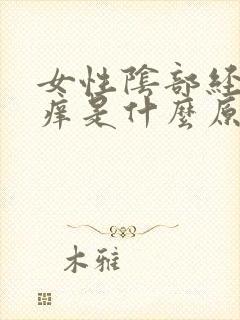 女性陰部経
痒是什麼原
木雅